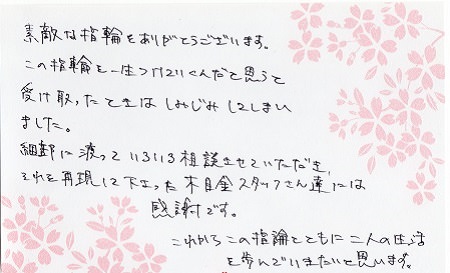 素敵な指輪をありがとうございます。
この指輪を一生つけていくんだと思うと
受け取ったときはしみじみしてしまい
ました。
細部に渡っていろいろ相談させていただき、
それを再現して下さった木目金スタッフさん達には
感謝です。
これからこの指論とともに二人の生活
を歩んでいきたいと思います。